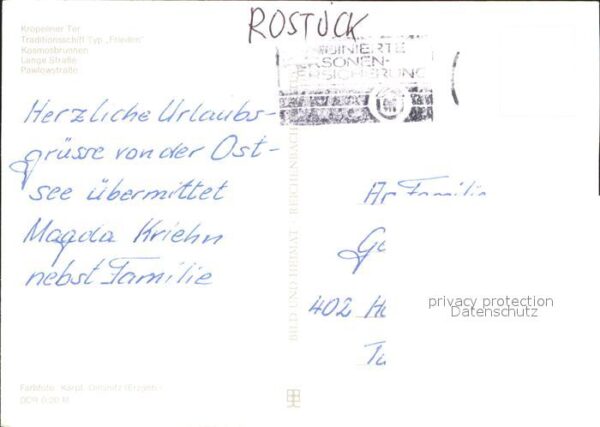 ROSTOCK
Kröpeliner Tor
Traditionsschiff Typ „Frieden“
Kosmosbrunnen
Lange Straße
Pawlowstraße
KOMBINIERTE
PERSONEN-
VERSICHERUNG
Herzliche Urlaubs-
grüsse von der Ost-
see übermittet
Magda Kriehn
nebst Familie
BILD UND HEIMAT REICHENBACH
An Familie
402
privacy protection
Datenschutz
DDR 0,20 M